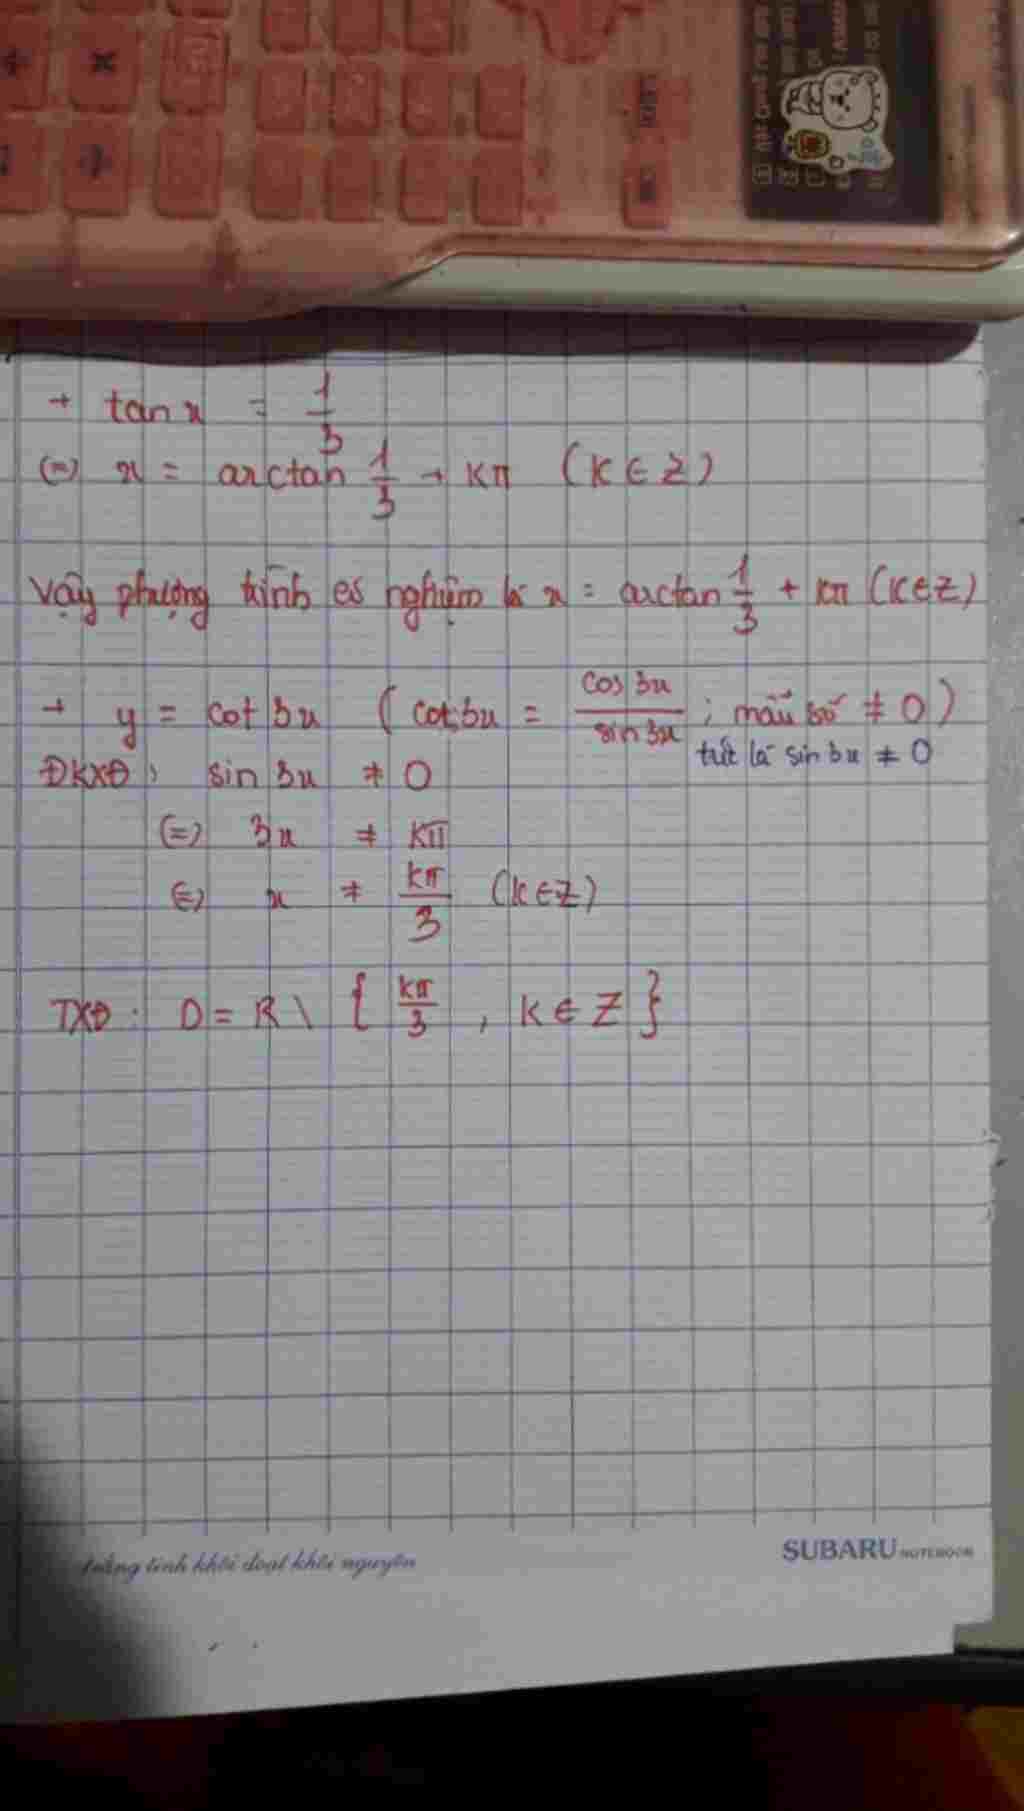 + tan x = 1/3
(=) x = arctan 1/3 + kπ (k ∈ Z)
Vậy phương trình có nghiệm là x = arctan 1/3 + kπ (k ∈ Z)
+ y = cot 3x ( cot 3x = cos 3x / sin 3x ; mẫu số ≠ 0 )
tức là sin 3x ≠ 0
ĐKXĐ : sin 3x ≠ 0
(=) 3x ≠ kπ
(=) x ≠ kπ/3 (k ∈ Z)
TXĐ : D = R \ { kπ/3 , k ∈ Z }
SUBARU NOTEBOOK
tinh khôi đoạt khôi nguyên